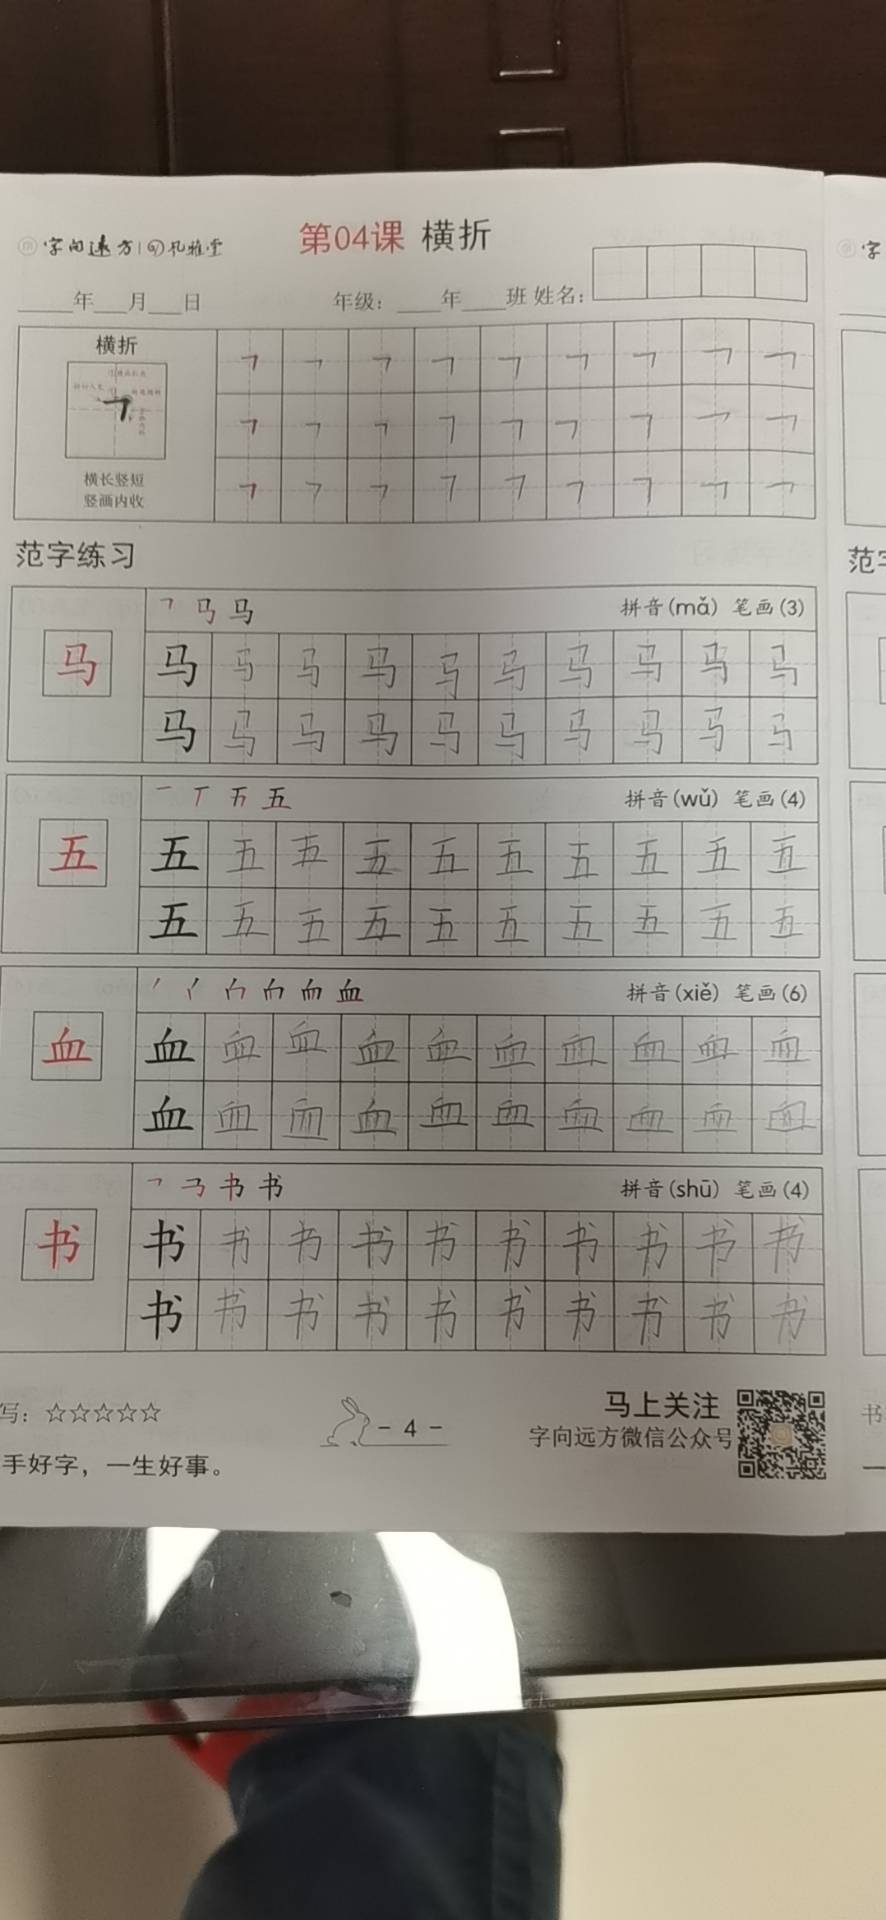 字向远方 孔雅堂
第04课 横折
年 月 日 年级： 年 班 姓名：
横折
横长竖短
竖画内收
范字练习
拼音(mǎ) 笔画(3)
马 马 马 马 马 马 马 马 马 马 马
马 马 马 马 马 马 马 马 马 马
五
拼音(wǔ) 笔画(4)
五 五 五 五 五 五 五 五 五 五 五
五 五 五 五 五 五 五 五 五 五
血
拼音(xiě) 笔画(6)
血 血 血 血 血 血 血 血 血 血 血
血 血 血 血 血 血 血 血 血 血
书
拼音(shū) 笔画(4)
书 书 书 书 书 书 书 书 书 书 书
书 书 书 书 书 书 书 书 书 书
写：☆☆☆☆☆
手好字，一生好事。
- 4 -
马上关注
字向远方微信公众号
字
范字
书